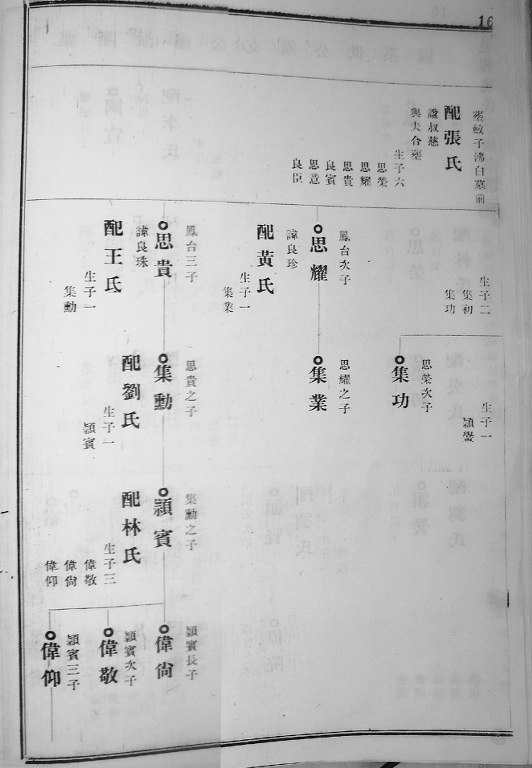 16
葬蚊子沸白墓前
配張氏
諡叔慈
與夫合塟
生子六
思榮
思耀
思貴
良賓
思意
良臣
生子二
集初
集功
鳳台次子
思耀
諱良珍
配黃氏
生子一
集業
鳳台三子
思貴
諱良珠
配王氏
生子一
集勳
生子一
思榮次子
集功
思耀之子
集業
思貴之子
集勳
配劉氏
生子一
穎賓
集勳之子
穎賓
配林氏
生子三
偉敬
偉尙
偉仰
穎賓長子
偉尙
穎賓次子
偉敬
穎賓三子
偉仰